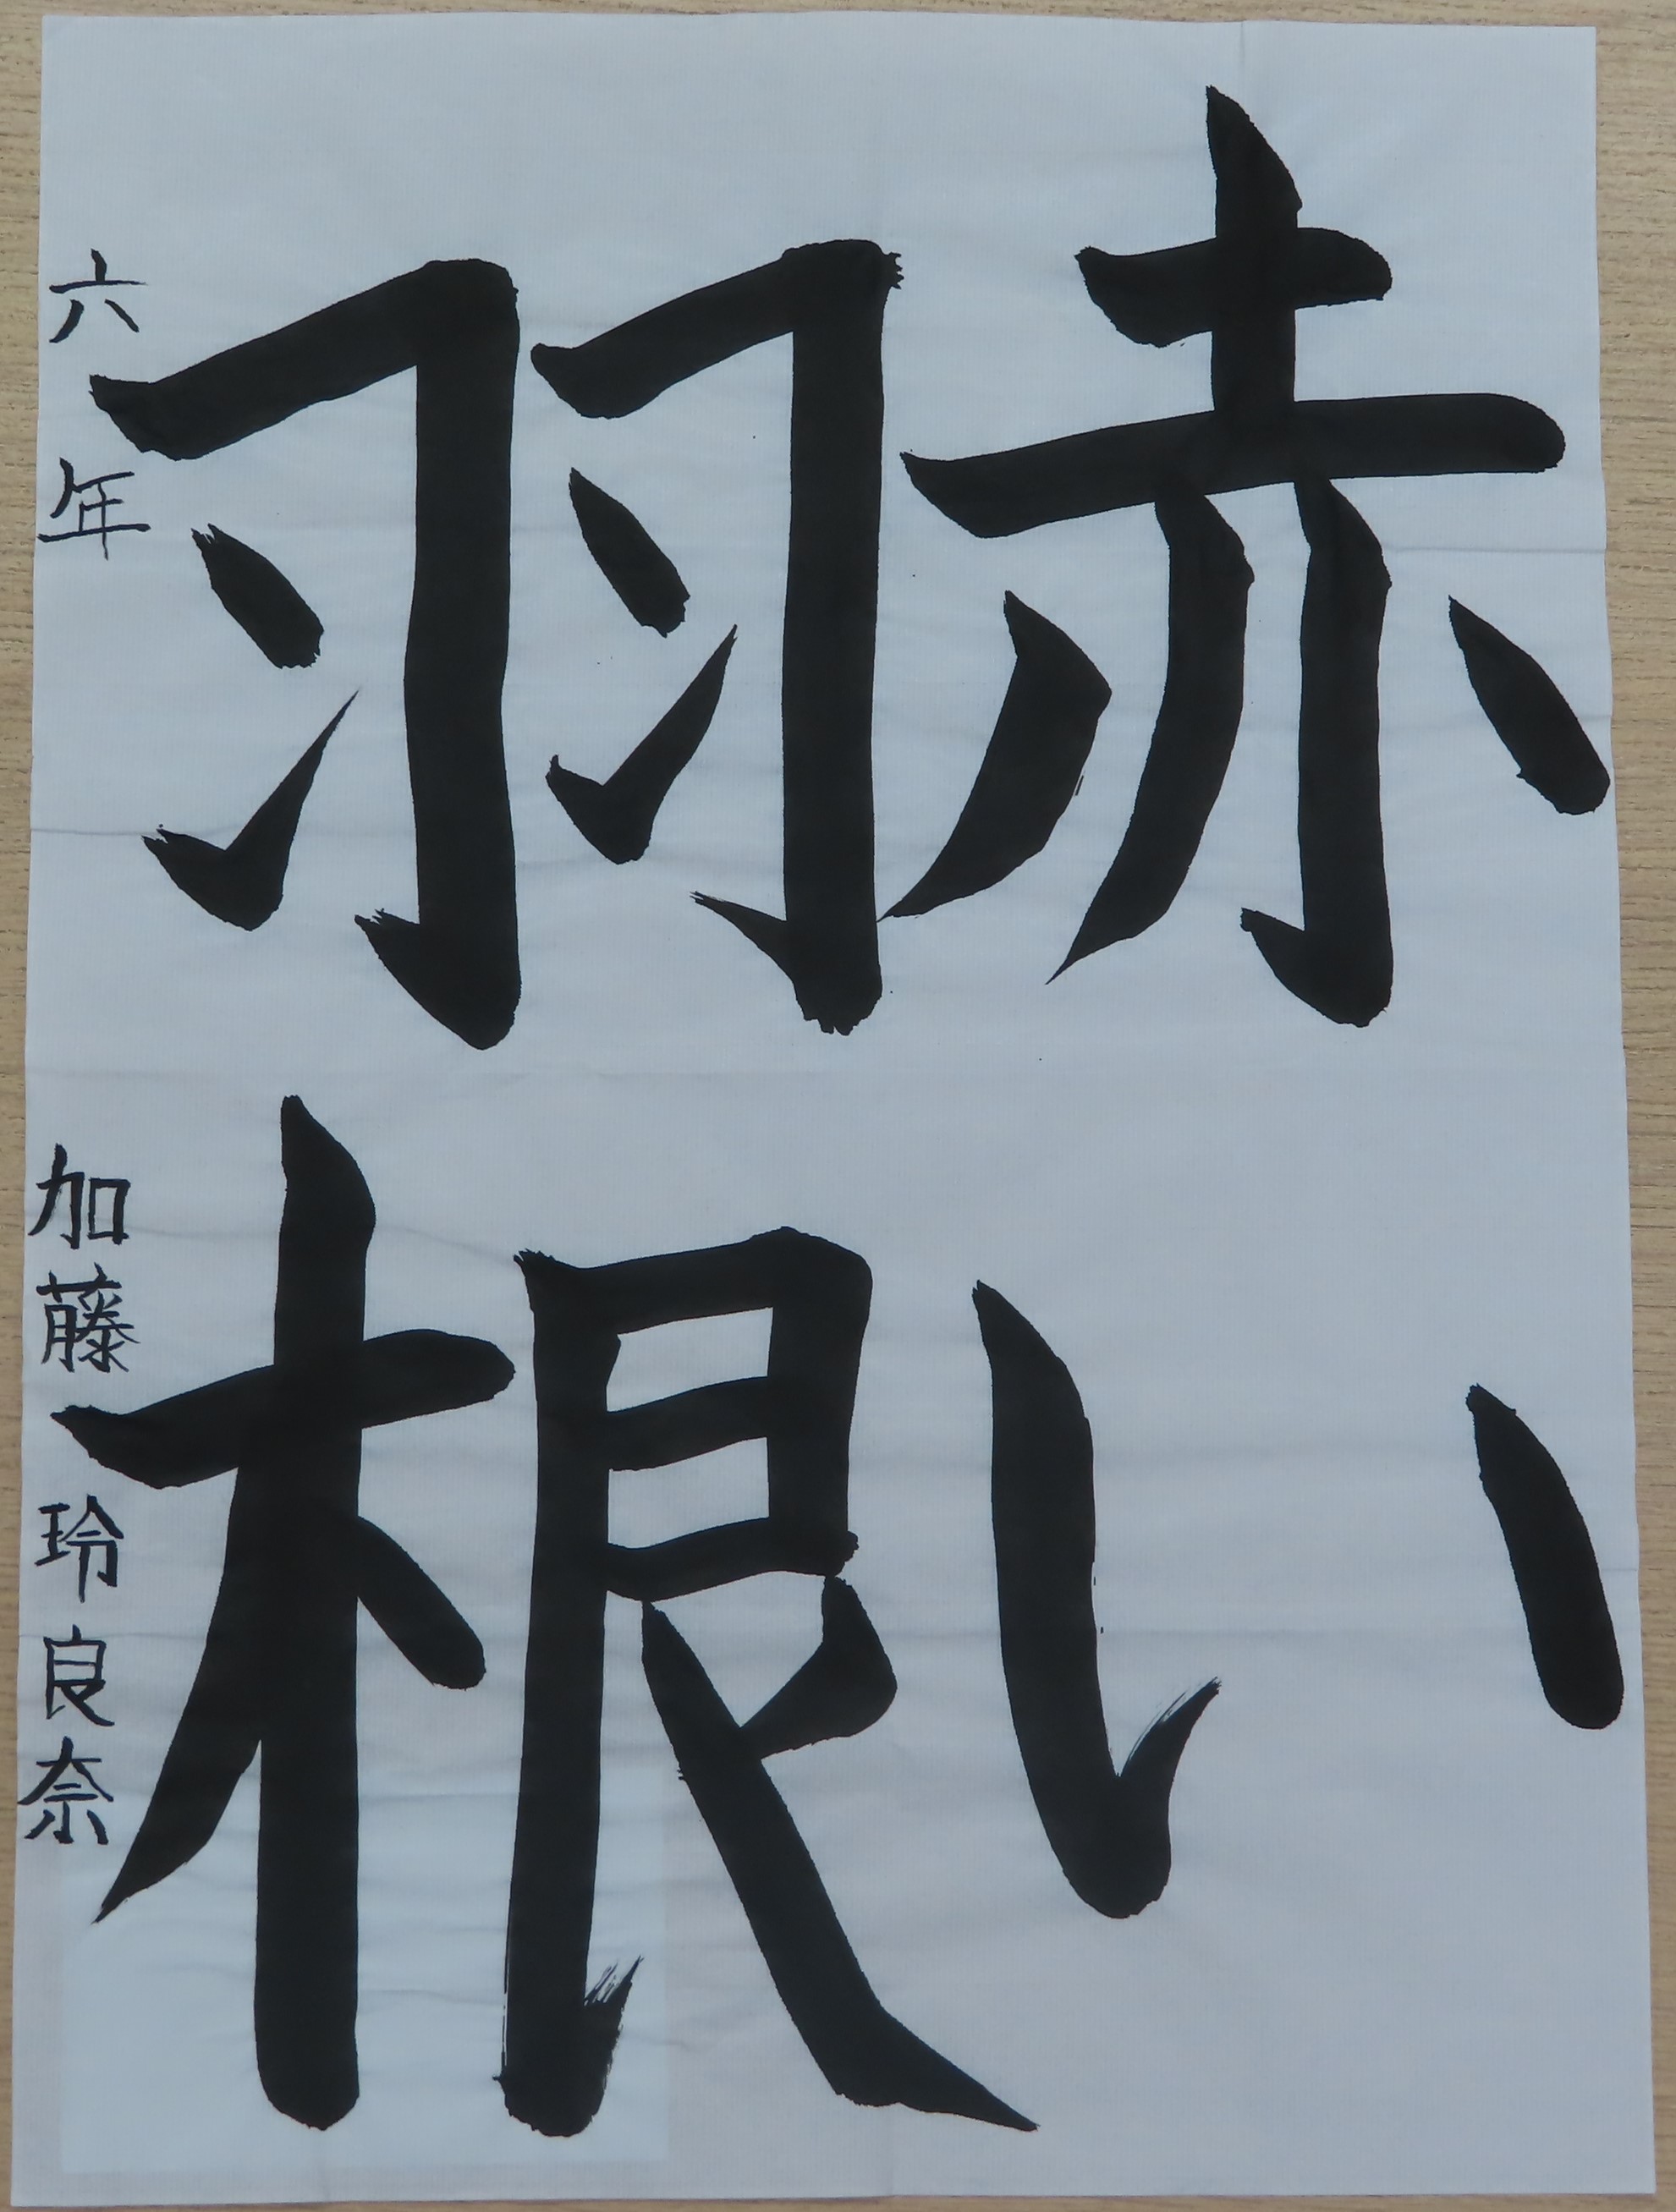 赤い
羽根
六年 加藤 玲良奈